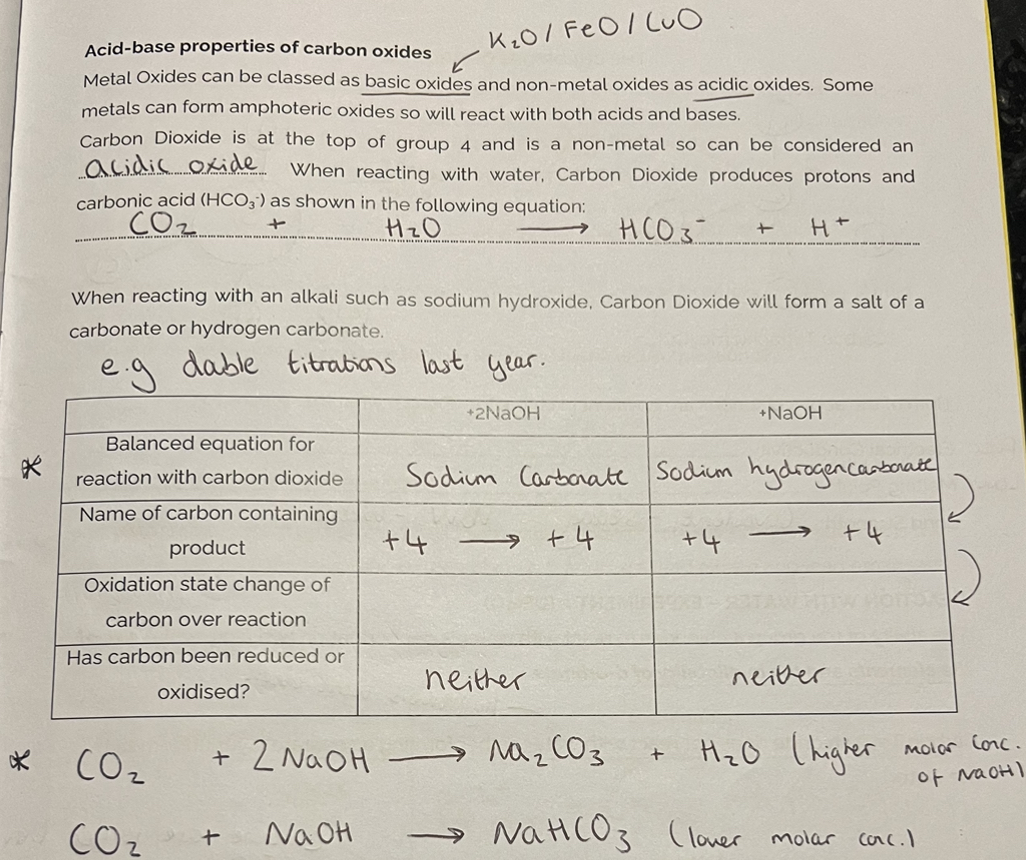 K₂O / FeO / CuO
Acid-base properties of carbon oxides
Metal Oxides can be classed as basic oxides and non-metal oxides as acidic oxides. Some
metals can form amphoteric oxides so will react with both acids and bases.
Carbon Dioxide is at the top of group 4 and is a non-metal so can be considered an
acidic oxide. When reacting with water, Carbon Dioxide produces protons and
carbonic acid (HCO₃⁻) as shown in the following equation:
CO₂ + H₂O → HCO₃⁻ + H⁺
When reacting with an alkali such as sodium hydroxide, Carbon Dioxide will form a salt of a
carbonate or hydrogen carbonate.
e.g dable titrations last year.
+2NaOH +NaOH
Balanced equation for
* reaction with carbon dioxide Sodium Carbonate Sodium hydrogencarbonate
Name of carbon containing
product +4 → +4 +4 → +4
Oxidation state change of
carbon over reaction
Has carbon been reduced or
oxidised? neither neither
* CO₂ + 2NaOH → Na₂CO₃ + H₂O (higher molar conc.
of NaOH)
CO₂ + NaOH → NaHCO₃ (lower molar conc.)